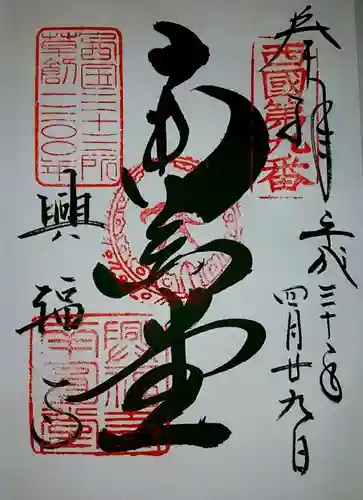 奉拝
平成三十年
四月廿九日
西國第九番
南圓堂
西国三十三所
草創一三〇〇年
興福寺
興福寺
南圓堂